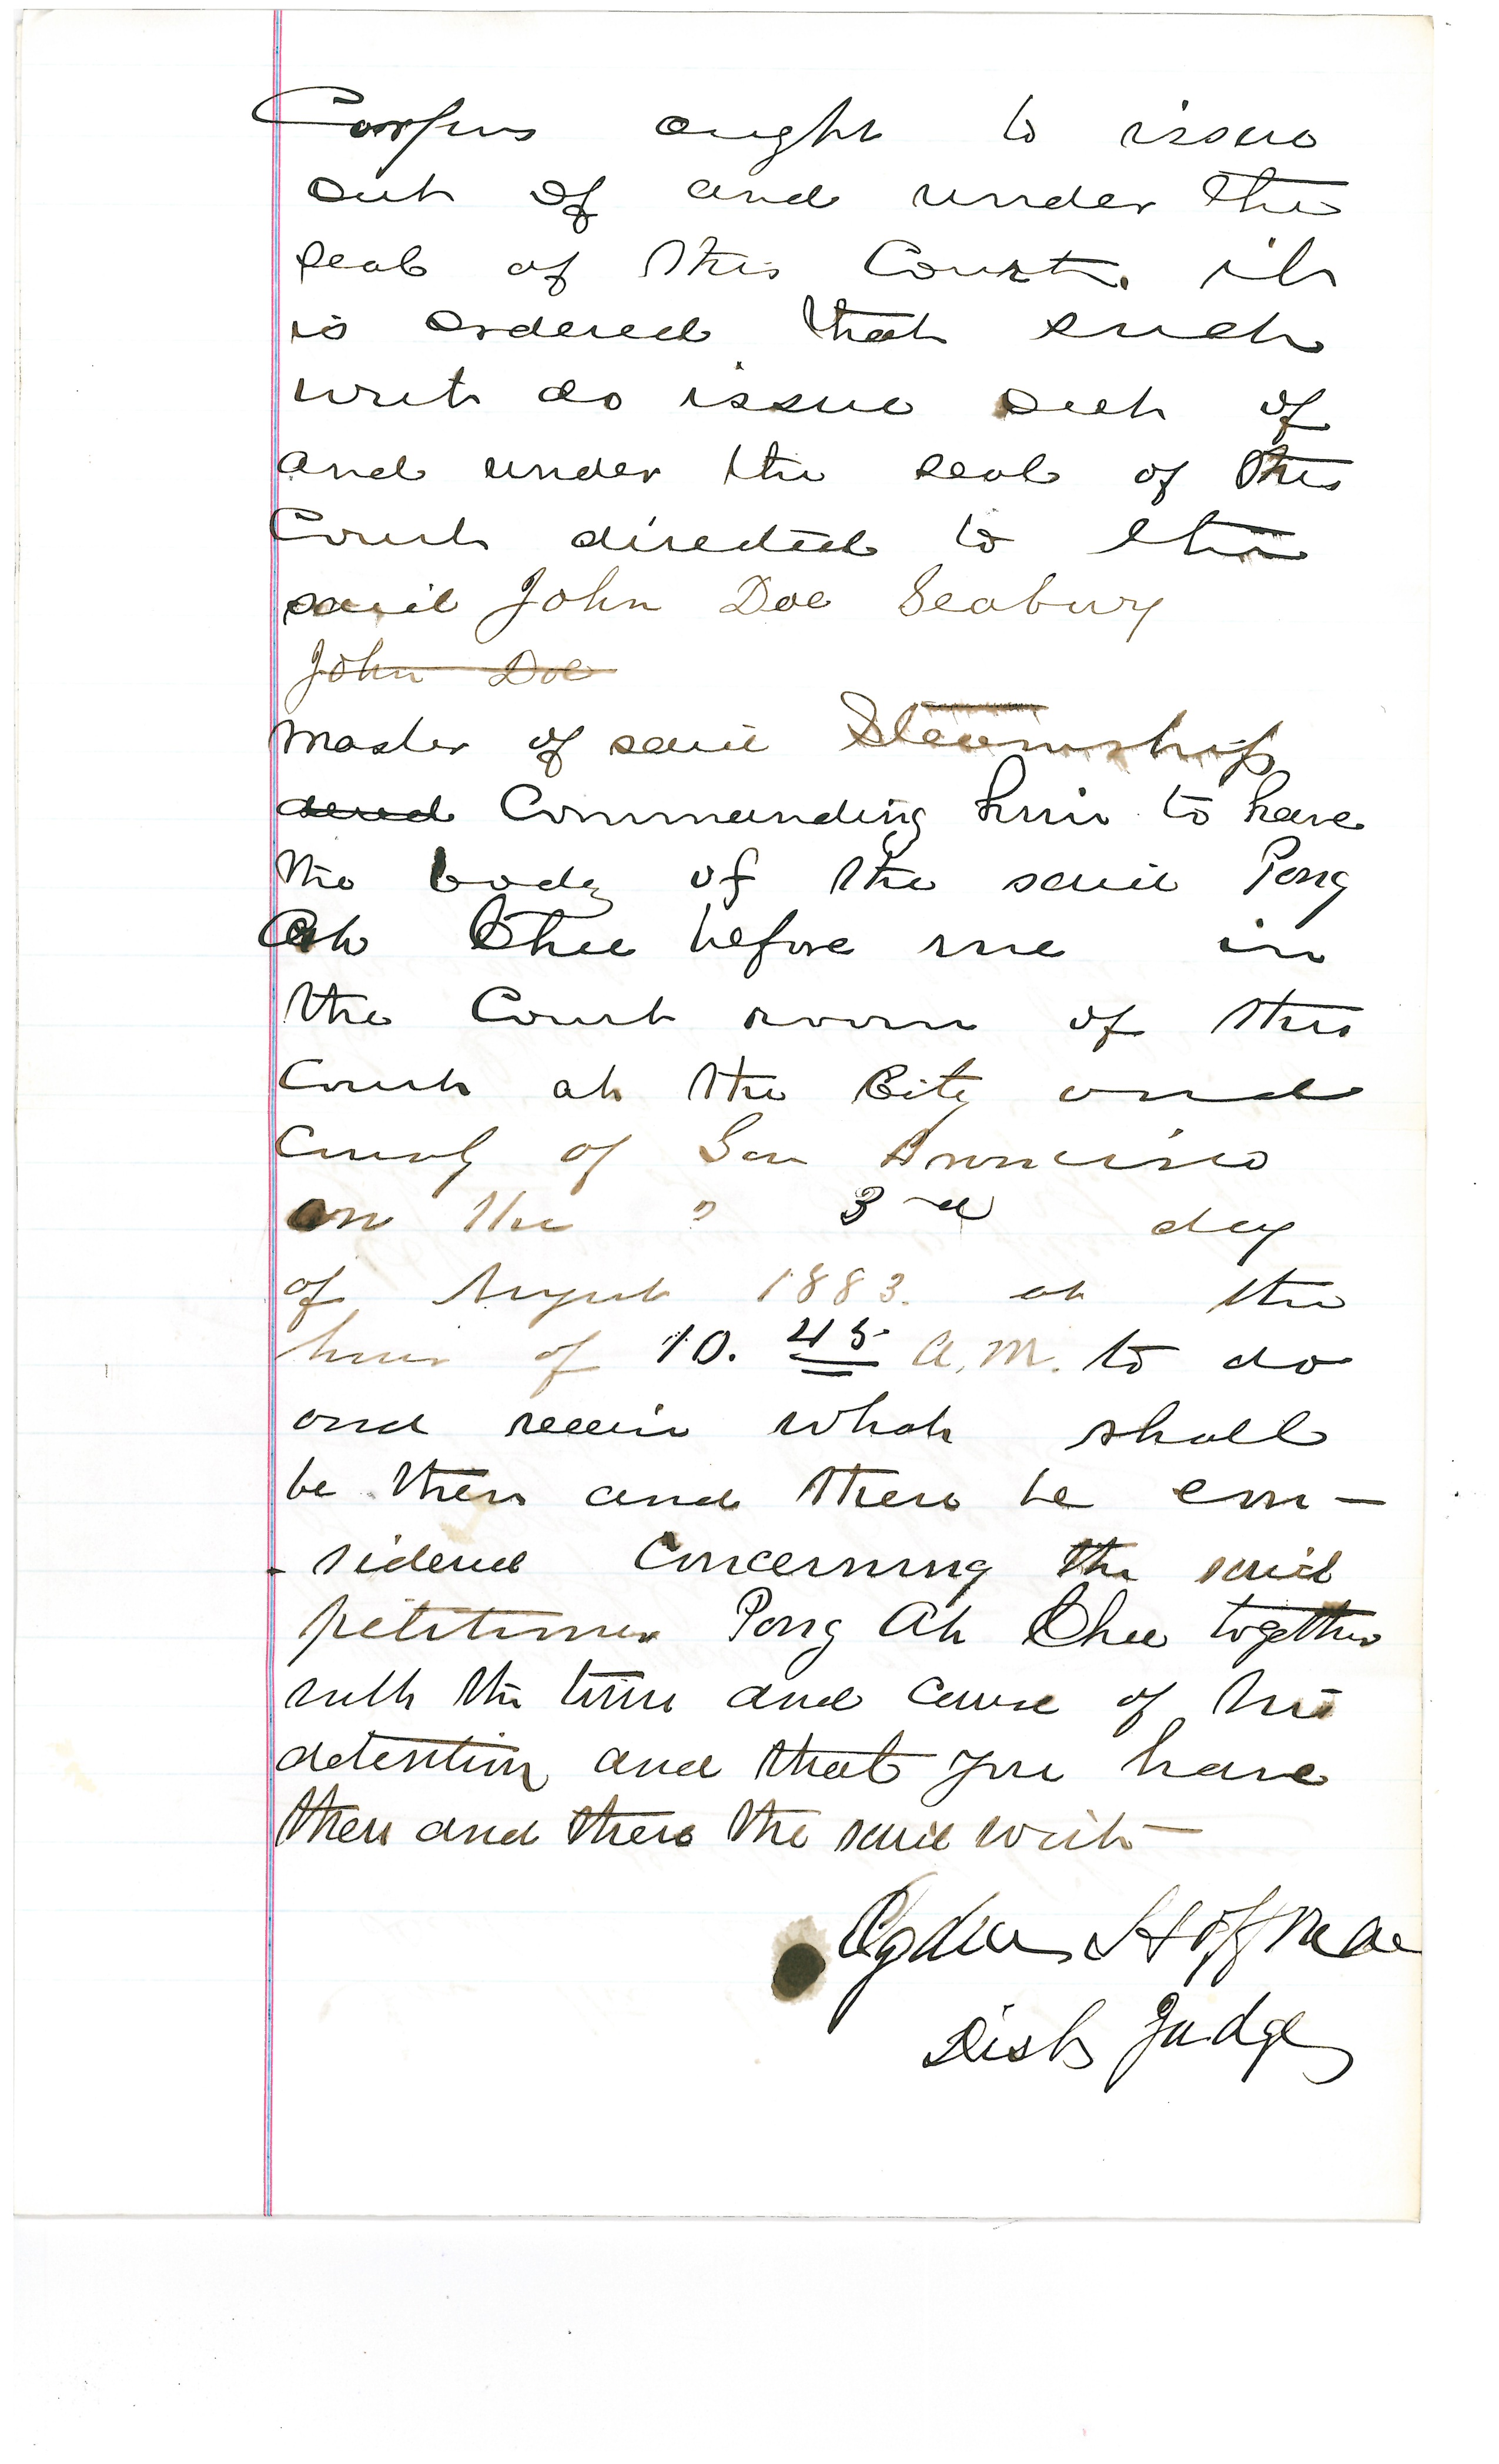 Corpus ought to issue
out of and under the
seal of this Court. it
is ordered that such
writ do issue out of
and under the seal of this
Court directed to the
said John Doe Seabury
John Doe
master of said Steamship
Commanding him to have
the body of the said Pong
Ah Chee before me in
the Court room of this
Court at the City and
County of San Francisco
on the " 3rd day
of August 1883. at the
hour of 10. 45 A.M. to do
and receive what shall
be then and there be con-
-sidered concerning the said
petitioner Pong Ah Chee together
with the time and cause of his
detention and that you have
then and there the said writ
Ogden Hoffman
Dist Judge